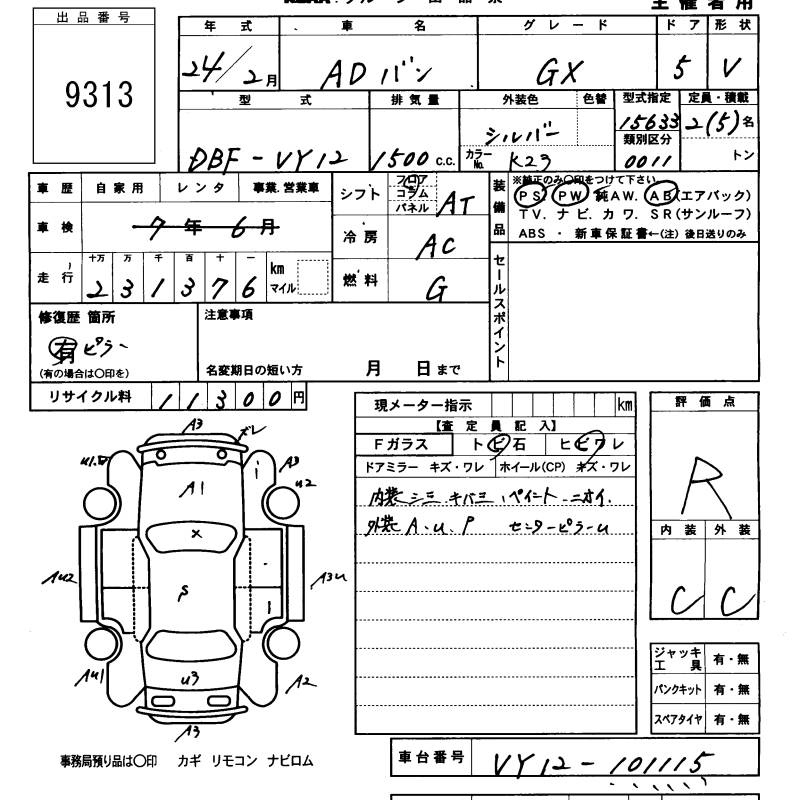 出品番号
9313
主催者用
年式 車名 グレード ドア 形状
24/2月 ADバン GX 5 V
型式 排気量 外装色 色替 型式指定 定員・積載
15633 2(5)名
シルバー
類別区分
DBF-VY12 1500c.c. カラーNo. K23 0011 トン
車歴 自家用 レンタ 事業.営業車
車検 7年6月
走行 十万 万 千 百 十 一
231376 km マイル
シフト フロア コラム パネル AT
冷房 AC
燃料 G
装備品
※純正のみ〇印をつけて下さい
PS PW 純AW. AB(エアバック)
TV. ナビ. カワ. SR(サンルーフ)
ABS ・ 新車保証書←(注) 後日送りのみ
セールスポイント
修復歴 箇所
有 ピラー
(有の場合は〇印を)
注意事項
名変期日の短い方 月 日まで
リサイクル料 11300円
現メーター指示 km
【査定員記入】
Fガラス トビ石 ヒビワレ
ドアミラー キズ・ワレ ホイール(CP) キズ・ワレ
内装 シミ キバミ、ペイント ニオイ.
外装 A.U.P センターピラーU
評価点
R
内装 外装
C C
A3
ズレ
A3
U2
A1
X
AU2
A3U
P
U3
AU1
A2
A3
ジャッキ工具 有・無
パンクキット 有・無
スペアタイヤ 有・無
事務局預り品は〇印 カギ リモコン ナビロム
車台番号 VY12-101115